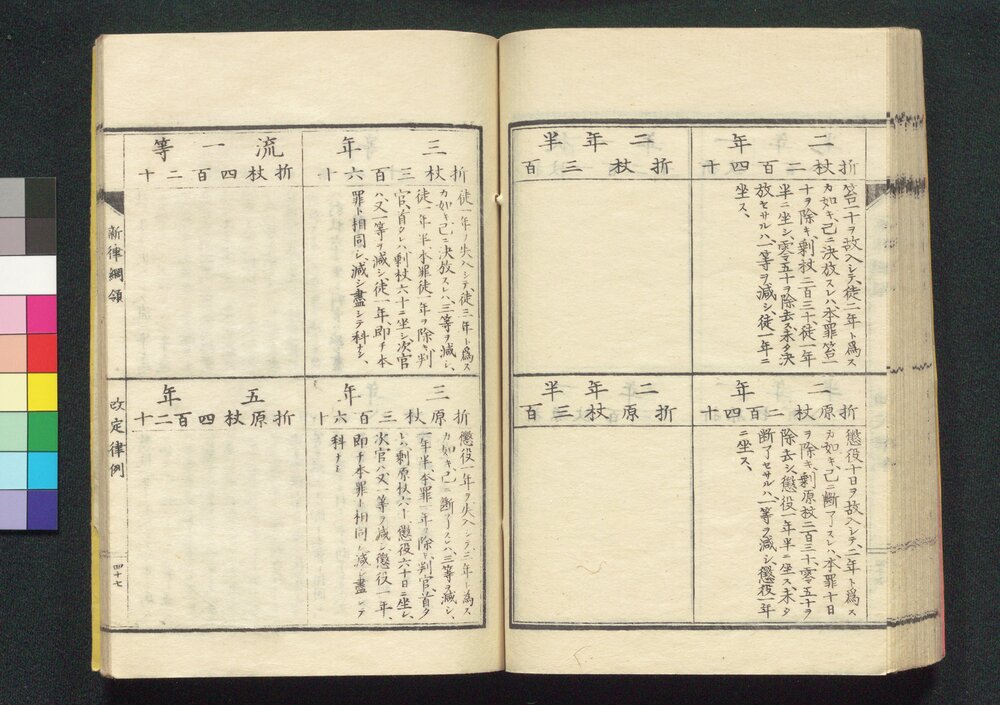 二年
折杖二百四十
笞一十ヲ故入シテ、徒二年ト爲ス
カ如キ、已ニ決放スレハ、本罪笞一
十ヲ除キ、剰杖二百三十、徒一年
半ニ坐シ、零五十ヲ除去ス、未タ決
放セサルハ、一等ヲ減シ、徒一年ニ
坐ス、
二年半
折杖三百
二年
折原杖二百四十
懲役十日ヲ故入シテ、二年ト爲ス
カ如キ、已ニ斷了スレハ、本罪十日
ヲ除キ、剰原杖二百三十、零五十ヲ
除去シ、懲役一年半ニ坐ス、未タ
斷了セサルハ、一等ヲ減シ、懲役一年
ニ坐ス、
二年半
折原杖三百
三年
折杖三百六十
徒一年ヲ失入シテ、徒三年ト爲ス
カ如キ、已ニ決放スレハ、三等ヲ減シ、
徒一年半、本罪徒一年ヲ除キ、判
官、首タレハ、剰杖六十ニ坐シ、次官
ハ、又一等ヲ減シ、徒一年、即チ本
罪ト相同シ、減シ盡シテ科ナシ、
流一等
折杖四百二十
三年
折原杖三百六十
懲役一年ヲ失入シテ、三年ト爲ス
カ如キ、已ニ斷了スレハ、三等ヲ減シ、
一年半、本罪一年ヲ除キ、判官首タ
レハ、剰原杖六十、懲役六十日ニ坐シ、
次官ハ、又一等ヲ減シ、懲役一年、
即チ本罪ト相同シ、減シ盡シテ
科ナシ
五年
折原杖四百二十
新律綱領
改定律例
四十七